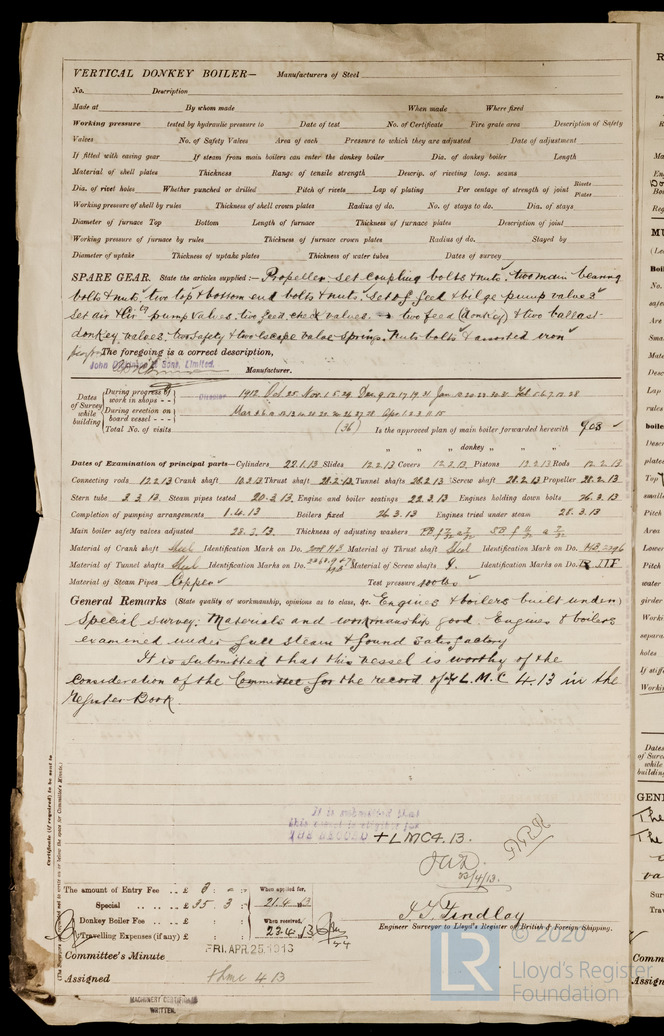 VERTICAL DONKEY BOILER— Manufacturers of Steel
No. Description
Made at By whom made When made Where fixed
Working pressure tested by hydraulic pressure to Date of test No. of Certificate Fire grate area Description of Safety
Valves No. of Safety Valves Area of each Pressure to which they are adjusted Date of adjustment
If fitted with easing gear If steam from main boilers can enter the donkey boiler Dia. of donkey boiler Length
Material of shell plates Thickness Range of tensile strength Descrip. of riveting long. seams
Dia. of rivet holes Whether punched or drilled Pitch of rivets Lap of plating Per centage of strength of joint Rivets Plates
Working pressure of shell by rules Thickness of shell crown plates Radius of do. No. of stays to do. Dia. of stays
Diameter of furnace Top Bottom Length of furnace Thickness of furnace plates Description of joint
Working pressure of furnace by rules Thickness of furnace crown plates Radius of do. Stayed by
Diameter of uptake Thickness of uptake plates Thickness of water tubes Dates of survey
SPARE GEAR. State the articles supplied:— Propeller, set coupling bolts & nuts, two main bearing
bolts & nuts, two top & bottom end bolts & nuts. Set of feed & bilge pump valves
set air & Cir pump valves. two feed check valves. two feed (donkey) & two ballast
donkey valves. two Safety & two escape valve springs. Nuts bolts & assorted iron
The foregoing is a correct description,
John Sons, Limited. Manufacturer.
Dates of Survey while building
During progress of work in shops - - 1912. Oct 25 Nov. 1. 5. 29. Dec. 9. 12. 17. 19. 21 Jan Feb 5. 6. 7. 12. 28
During erection on board vessel - - - Mar 3. 6. Apr 1. 2. 3. 11. 15
Total No. of visits (36) Is the approved plan of main boiler forwarded herewith Yes
" " " donkey " " "
Dates of Examination of principal parts—Cylinders 22.1.13 Slides 12.2.13 Covers 12.2.13 Pistons 12.2.13 Rods 12.2.13
Connecting rods 12.2.13 Crank shaft 10.2.13 Thrust shaft 28.2.13 Tunnel shafts 28.2.13 Screw shaft 28.2.13 Propeller 28.2.13
Stern tube 3.3.13 Steam pipes tested 20.3.13 Engine and boiler seatings 22.3.13 Engines holding down bolts 26.3.13
Completion of pumping arrangements 1.4.13 Boilers fixed 26.3.13 Engines tried under steam 28.3.13
Main boiler safety valves adjusted 28.3.13. Thickness of adjusting washers
Material of Crank shaft Steel Identification Mark on Do. Material of Thrust shaft Steel Identification Mark on Do.
Material of Tunnel shafts Steel Identification Marks on Do. Material of Screw shafts Identification Marks on Do.
Material of Steam Pipes Copper Test pressure 400 lbs
General Remarks (State quality of workmanship, opinions as to class, &c. Engines & boilers built under
Special survey. Materials and workmanship good. Engines & boilers
examined under full steam & found satisfactory
It is submitted that this vessel is worthy of the
consideration of the Committee for the record of + L.M.C 4.13 in the
Register Book.
It is submitted that
this vessel is eligible for
THE RECORD + LMC 4.13.
23/4/13.
Certificate (if required) to be sent to
The amount of Entry Fee .. £ 3 : - : When applied for,
Special .. £ 35 . 3 : 21.4.13
Donkey Boiler Fee .. £ : : When received,
Travelling Expenses (if any) £ : : 23.4.13
Engineer Surveyor to Lloyd's Register of British & Foreign Shipping.
Committee's Minute FRI. APR. 25. 1913
Assigned + Lmc 4 13
MACHINERY CERTIFICATE
WRITTEN.
© 2020
LR
Lloyd's Register
Foundation